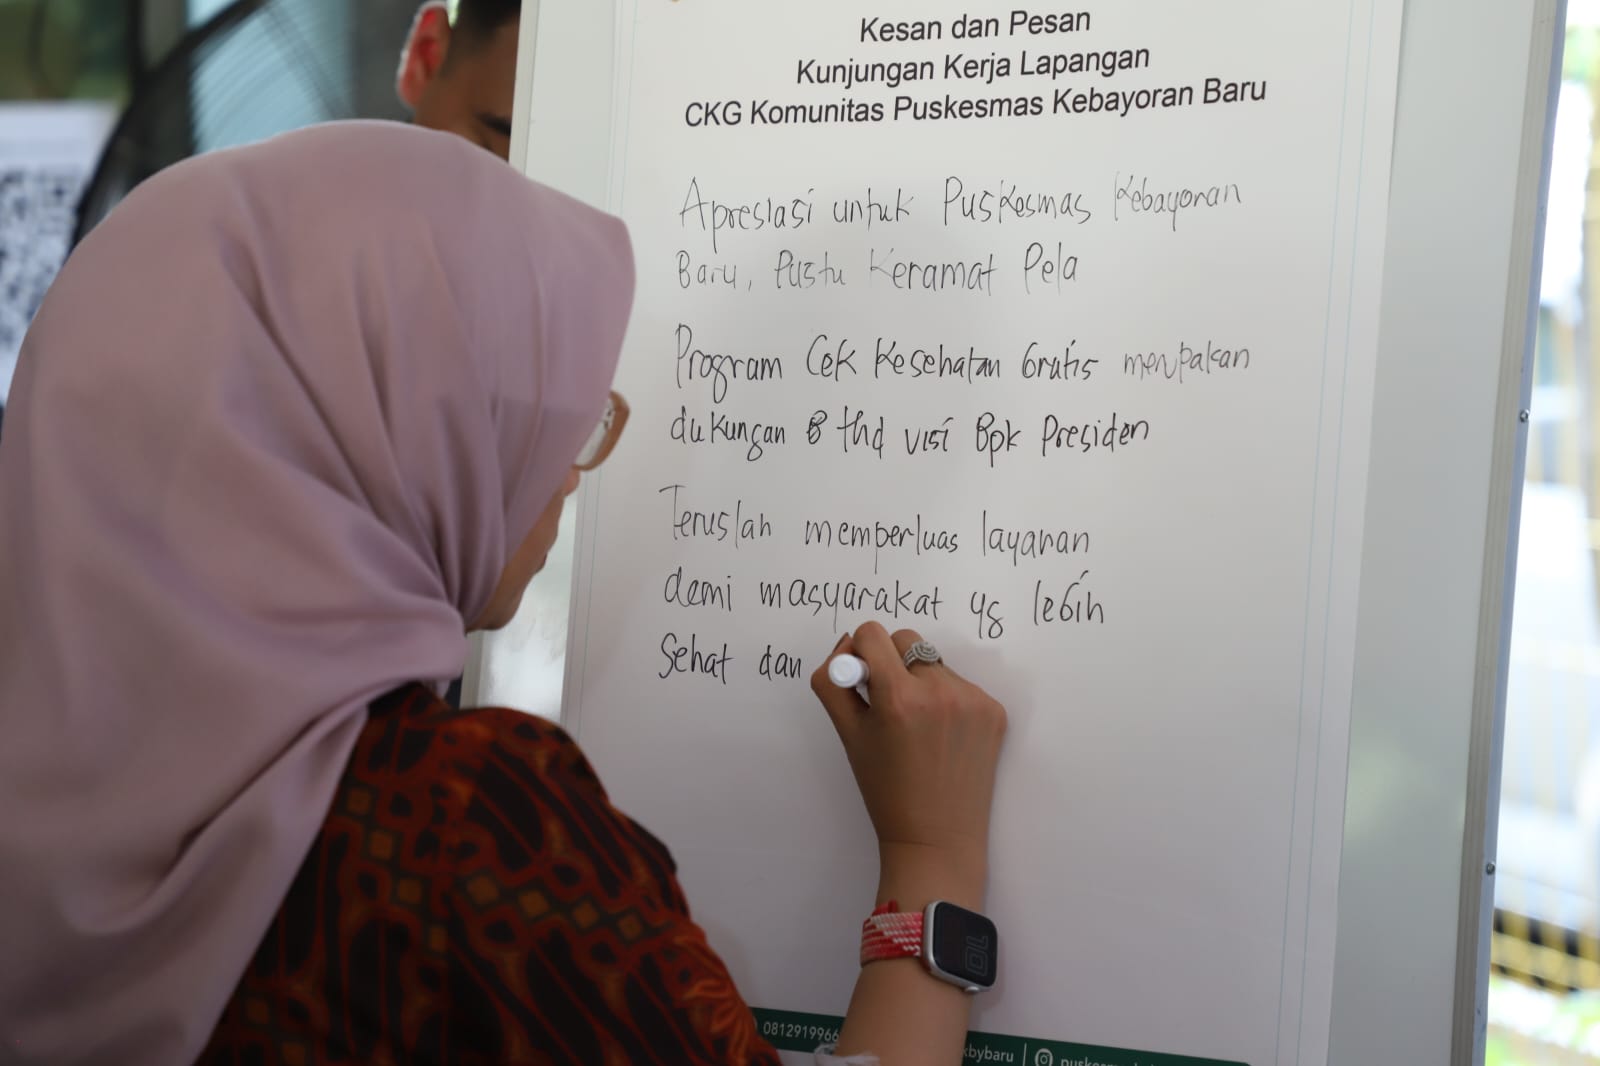 Kesan dan Pesan
Kunjungan Kerja Lapangan
CKG Komunitas Puskesmas Kebayoran Baru
Apresiasi untuk Puskesmas Kebayoran
Baru, Pustu Keramat Pela
Program Cek Kesehatan Gratis merupakan
dukungan thd visi Bpk Presiden
Teruslah memperluas layanan
demi masyarakat yg lebih
Sehat dan
10
0812919966
kbybaru